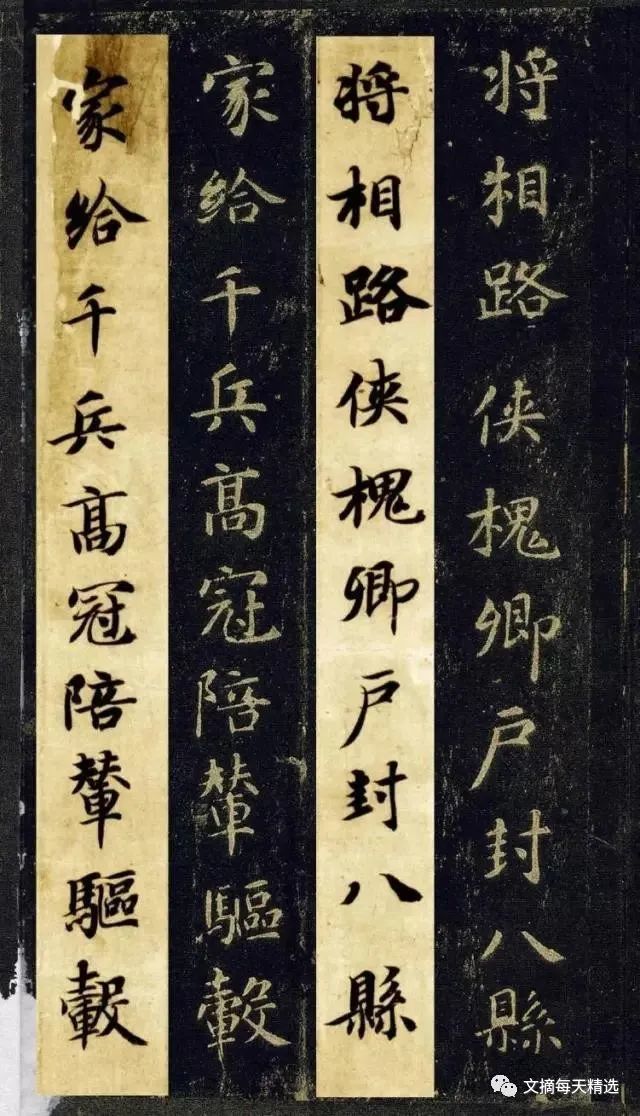 将相路侠槐卿户封八縣
将相路侠槐卿户封八縣
家给千兵髙冠陪辇驅轂
家给千兵髙冠陪辇驅轂
文摘每天精选